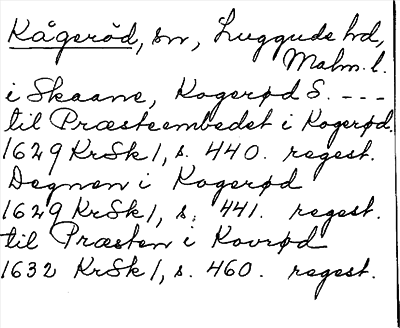 Kågeröd, sn, Luggude hd,
Malm. l.
i Skaane, Kogerød S. ---
til Præsteembedet i Kogerød.
1629 KrSk 1, s. 440. regest.
Degnen i Kogerød
1629 KrSk 1, s. 441. regest.
til Præsten i Kovrød
1632 KrSk 1, s. 460. regest.